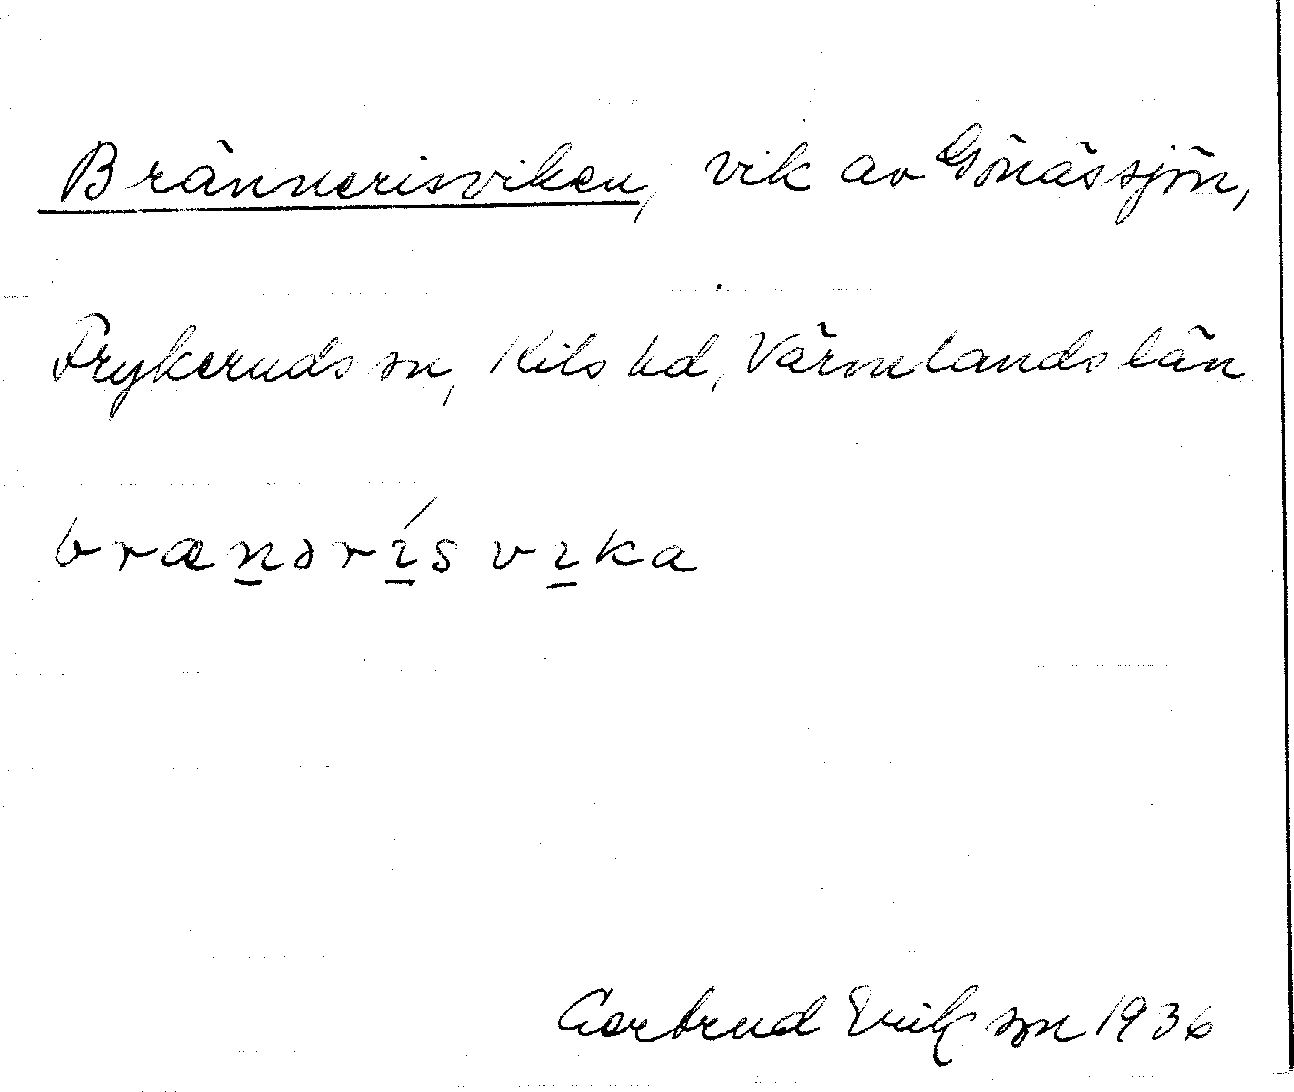 Brännerisviken, vik av Gönässjön,
Frykeruds sn, Kils hd, Värmlands län
bræn̲ərí̲s vı̲ka
Gertrud Erikson 1936